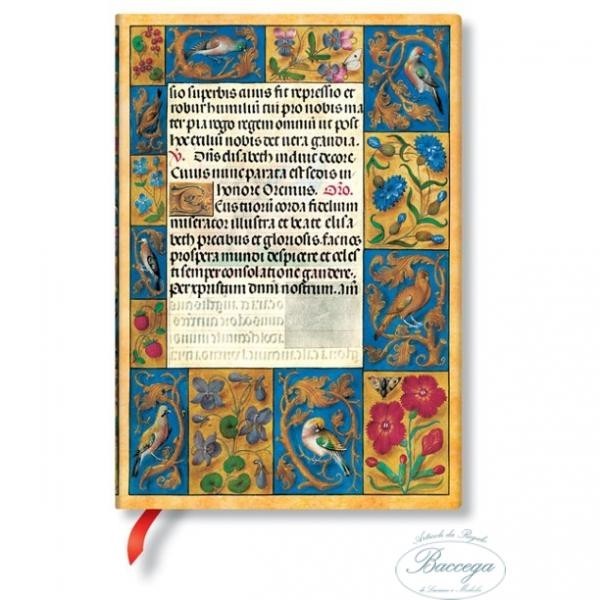 sio superbis cuius fit repressio et
robur humiliũ tui pro nobis ma
ter pia rogo regem omniũ ut post
hoc exiliũ nobis det vera gaudia.
V. Dñs elisabeth induit decore
Cuius nunc parata est sedis in
honore Oremus. Oro.
Deus tuorũ corda fidelium
miserator illustra et beate elisa
beth precibus et gloriosis. fac nos
prospera mundi despicere et celes
ti semper consolatione gaudere.
Per cristum dnm nostrum. am
Articoli da Regalo
Baccega
di Luciana e Michela